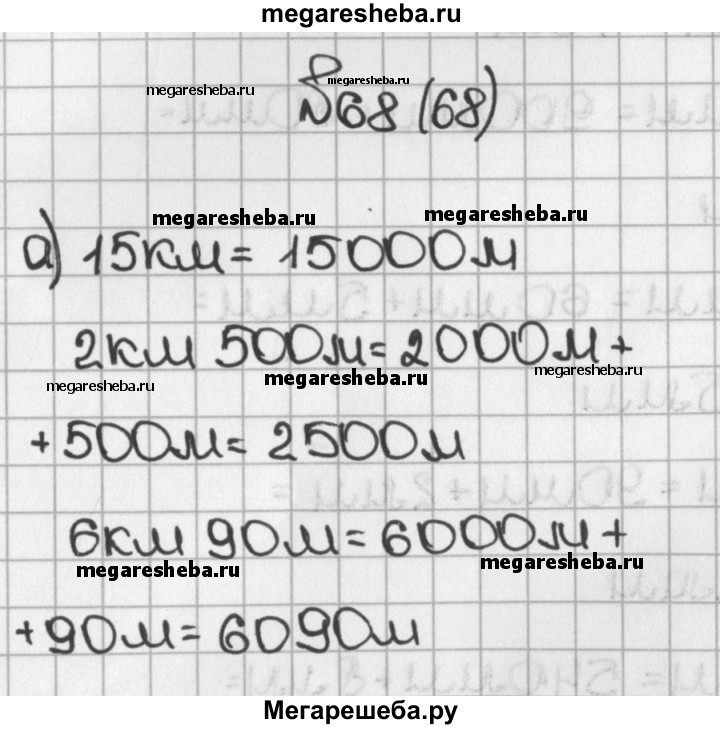 megaresheba.ru
megaresheba.ru megaresheba.ru
№68 (68)
megaresheba.ru megaresheba.ru
а) 15км = 15000м
2км 500м = 2000м +
megaresheba.ru megaresheba.ru megaresheba.ru
+ 500м = 2500м
6км 90м = 6000м +
megaresheba.ru megaresheba.ru
+ 90м = 6090м
Мегарешеба.ру